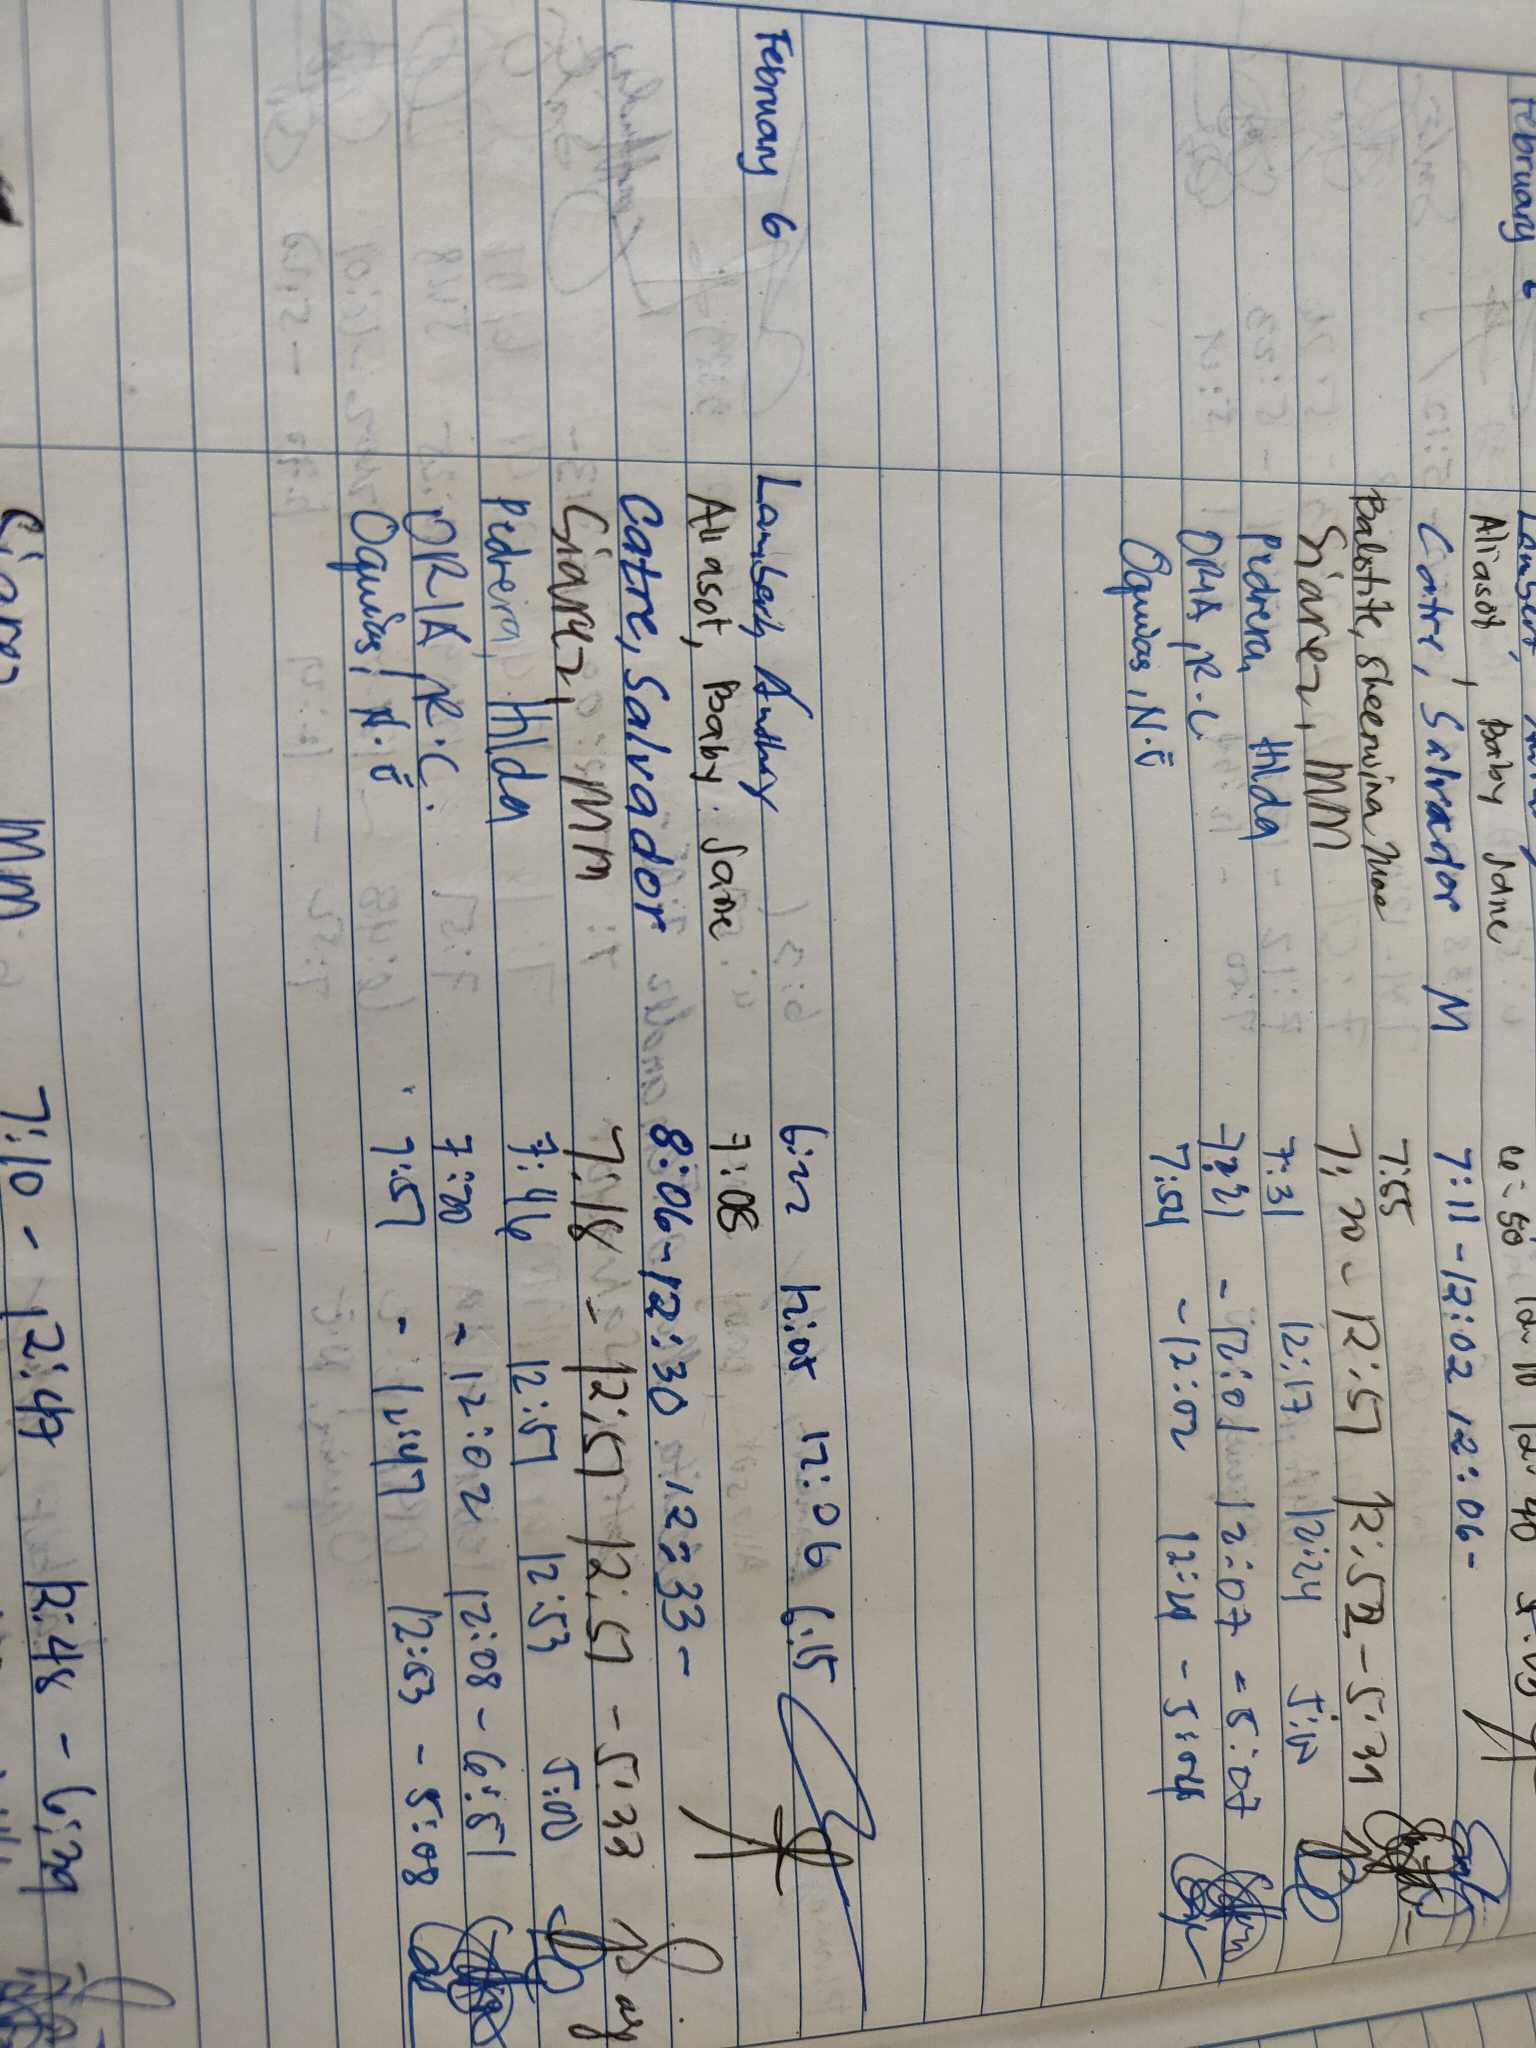 February
Aliasot, Baby Jane
Catre, Salvador M 7:11 - 12:02 12:06 -
Babotite, Sheerwina Mae 7:55
Siarez, MM 7:20 - 12:51 12:52 - 5:31
Pedrera, Hlda 7:31 12:17 12:24
ORIA, R.C - 12:01 12:07 - 5:07
Oquias, N.O 7:54 - 12:02 12:21 - 5:04
February 6 Anthony 12:05 12:06 6:15
Aliasot, Baby Jane 7:08
Catre, Salvador 8:06 - 12:30 12:33 -
Siarez, MM 7:18 - 12:51 12:51 - 5:33
Pedrera, Hlda 7:46 12:51 12:53 5:00
ORIA, R.C. 7:20 - 12:02 12:08 - 6:51
Oquias, N.O 7:57 - 12:53 - 5:08
Siarez MM 7:10 - 12:47 12:48 - 6:29